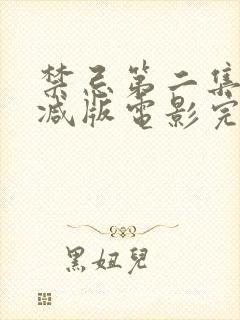 禁忌第二集
减版电影完
黑妞兒